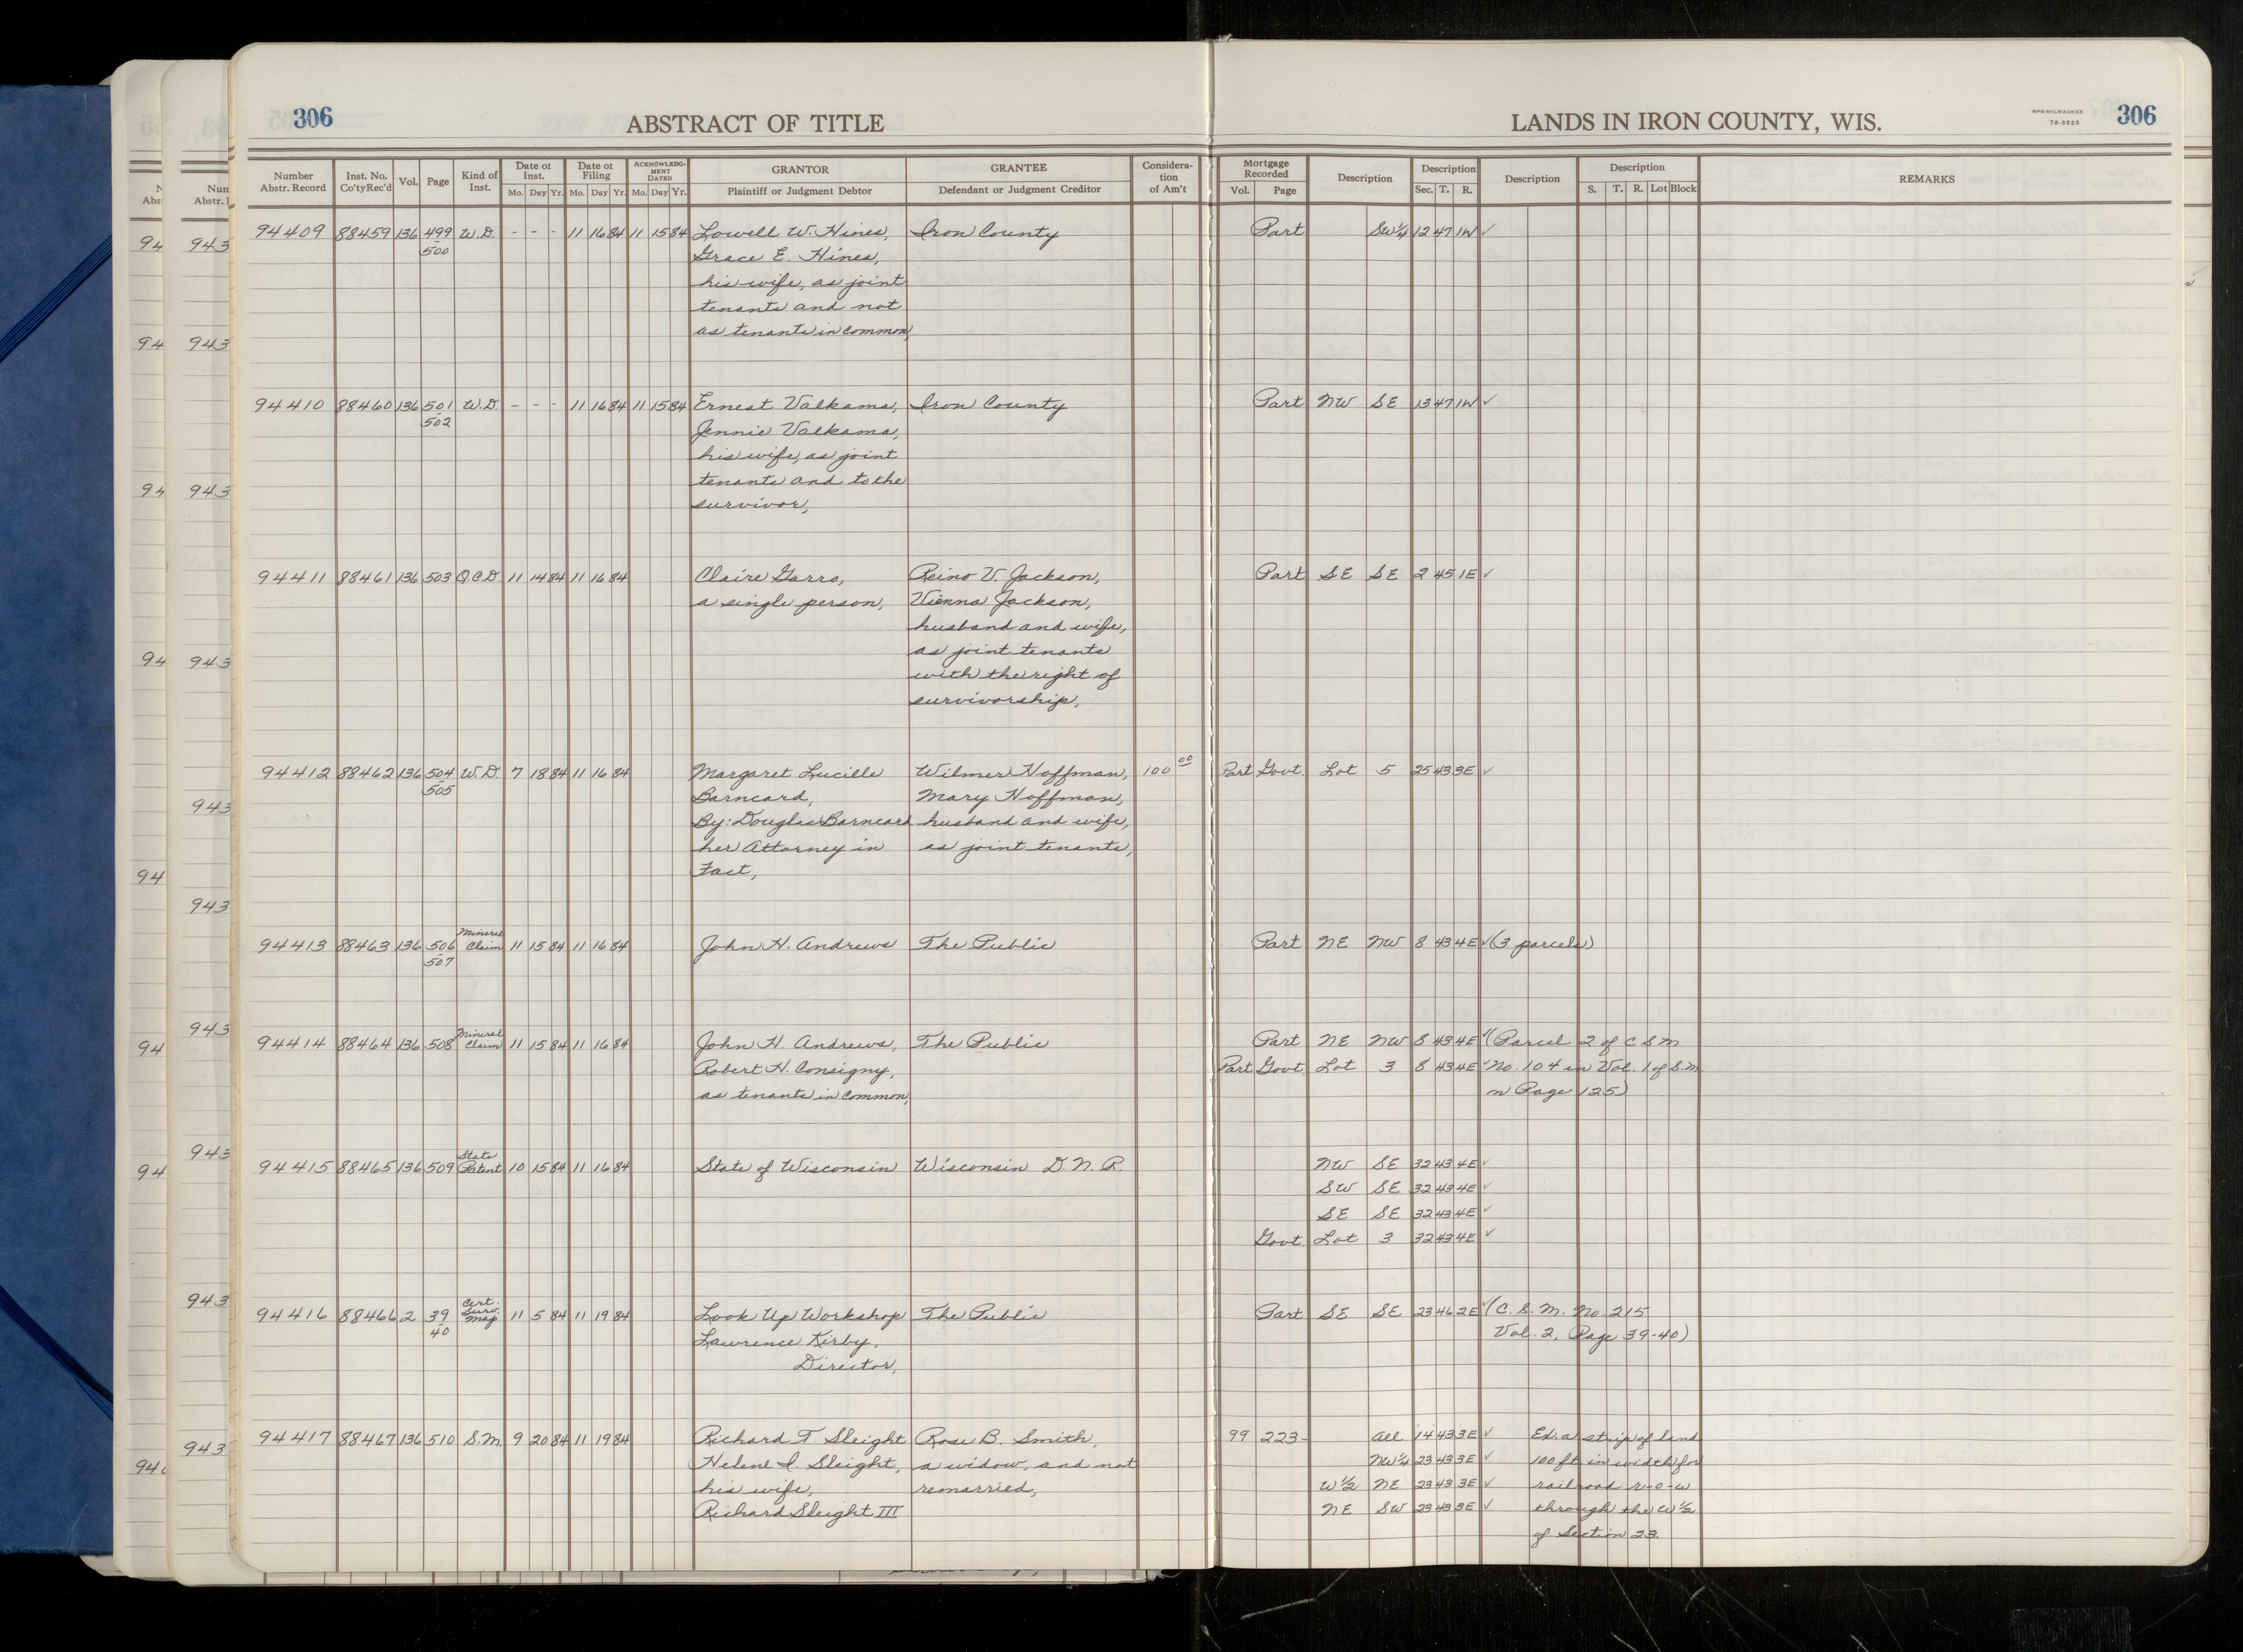 306
ABSTRACT OF TITLE
LANDS IN IRON COUNTY, WIS.
WPB-MILWAUKEE
78-3525
306
Number Abstr. Record | Inst. No. Co'ty Rec'd | Vol. | Page | Kind of Inst. | Date of Inst. Mo. Day Yr. | Date of Filing Mo. Day Yr. | ACKNOWLEDGMENT DATED Mo. Day Yr. | GRANTOR Plaintiff or Judgment Debtor | GRANTEE Defendant or Judgment Creditor | Consideration of Am't | Mortgage Recorded Vol. Page | Description | Description Sec. T. R. | Description | Description S. T. R. Lot Block | REMARKS
94409 88459 136 499 W.D. - - - 11 16 84 11 15 84 Lowell W. Hines, Iron County Part SW¼ 12 47 1W ✓
500 Grace E. Hines,
his wife, as joint
tenants and not
as tenants in common,
94410 88460 136 501 W.D. - - - 11 16 84 11 15 84 Ernest Valkama, Iron County Part NW SE 13 47 1W ✓
502 Jennie Valkama,
his wife, as joint
tenants and to the
survivor,
94411 88461 136 503 Q.C.D. 11 14 84 11 16 84 Claire Garro, Reino V. Jackson, Part SE SE 2 45 1E ✓
a single person, Vienna Jackson,
husband and wife,
as joint tenants
with the right of
survivorship,
94412 88462 136 504 W.D. 7 18 84 11 16 84 Margaret Lucille Wilmer Hoffman, 100 00 Part Govt. Lot 5 25 43 3E ✓
505 Barncard, Mary Hoffman,
By: Douglas Barncard husband and wife,
her Attorney in as joint tenants,
Fact,
94413 88463 136 506 Mineral Claim 11 15 84 11 16 84 John H. Andrews The Public Part NE NW 8 43 4E ✓ (3 parcels)
507
94414 88464 136 508 Mineral Claim 11 15 84 11 16 84 John H. Andrews, The Public Part NE NW 8 43 4E ✓ (Parcel 2 of C S M
Robert H. Consigny, Part Govt. Lot 3 8 43 4E ✓ No. 104 in Vol. 1 of S.M.
as tenants in common, on Page 125)
94415 88465 136 509 State Patent 10 15 84 11 16 84 State of Wisconsin Wisconsin D. N. R. NW SE 32 43 4E ✓
SW SE 32 43 4E ✓
SE SE 32 43 4E ✓
Govt. Lot 3 32 43 4E ✓
94416 88466 2 39 Cert. Surv. Map 11 5 84 11 19 84 Look Up Workshop The Public Part SE SE 23 46 2E ✓ (C. S. M. No. 215
40 Lawrence Kirby, Vol. 2, Page 39-40)
Director,
94417 88467 136 510 S.M. 9 20 84 11 19 84 Richard T. Sleight Rose B. Smith, 99 223- All 14 43 3E ✓ Ex. a strip of land
Helene I. Sleight, a widow, and not NW¼ 23 43 3E ✓ 100 ft. in width for
his wife, remarried, W½ NE 23 43 3E ✓ railroad r-o-w
Richard Sleight III NE SW 23 43 3E ✓ through the W½
of Section 23.